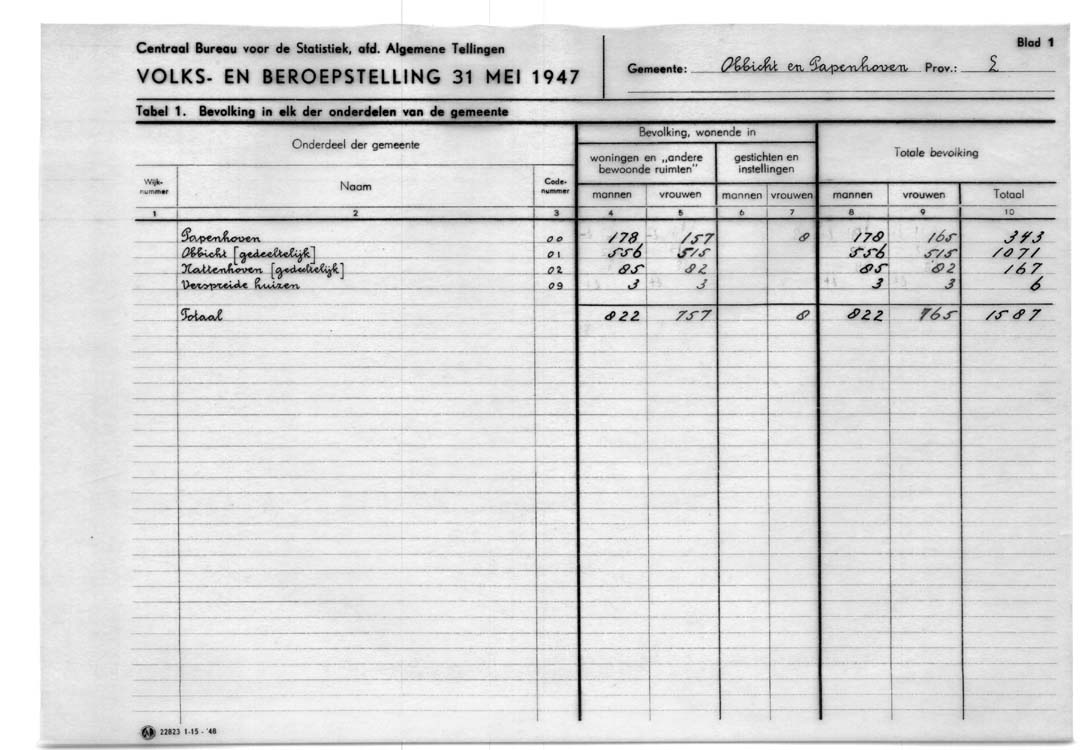 Centraal Bureau voor de Statistiek, afd. Algemene Tellingen
VOLKS- EN BEROEPSTELLING 31 MEI 1947
Gemeente: Obbicht en Papenhoven Prov.: L
Blad 1
Tabel 1. Bevolking in elk der onderdelen van de gemeente
Onderdeel der gemeente
Bevolking, wonende in
Totale bevolking
woningen en „andere bewoonde ruimten"
gestichten en instellingen
Wijk-nummer Naam Code-nummer mannen vrouwen mannen vrouwen mannen vrouwen Totaal
1 2 3 4 5 6 7 8 9 10
Papenhoven 00 178 157 8 178 165 343
Obbicht [gedeeltelijk] 01 556 515 556 515 1071
Nattenhoven [gedeeltelijk] 02 85 82 85 82 167
Verspreide huizen 09 3 3 3 3 6
Totaal 822 757 8 822 765 1587
22823 1-15 - '48